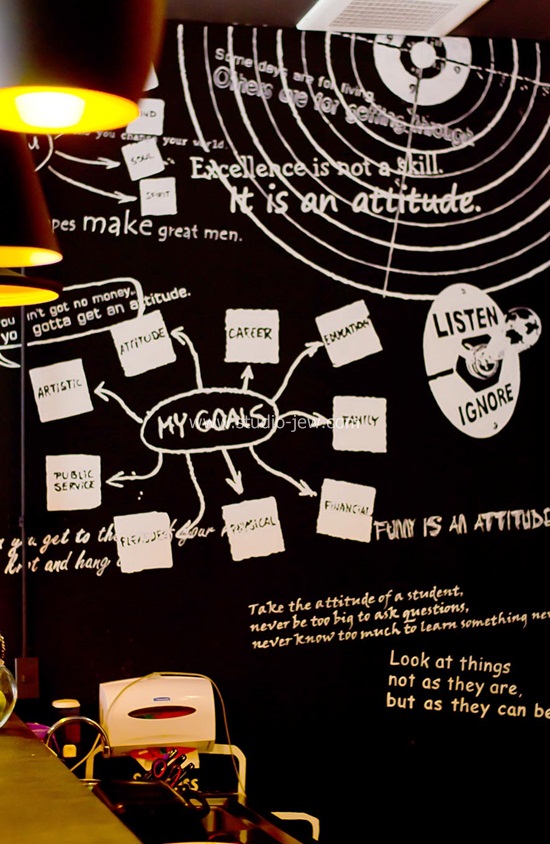 Some days are for living.
Others are for getting through
you change your world.
SOUL
SPIRIT
Excellence is not a skill.
It is an attitude.
make great men.
n't got no money..
gotta get an attitude.
ATTITUDE
CAREER
EDUCATION
ARTISTIC
MY GOALS
FAMILY
PUBLIC
SERVICE
PLEASURE
PHYSICAL
FINANCIAL
LISTEN
IGNORE
www.studio-jew.com
you get to the
your
and hang
FUNNY IS AN ATTITUDE
Take the attitude of a student,
never be too big to ask questions,
never know too much to learn something
Look at things
not as they are,
but as they can be